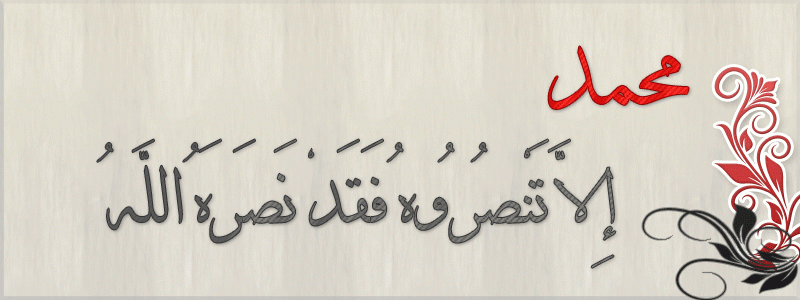 محمد
إِلاَّ تَنصُرُوهُ فَقَدْ نَصَرَهُ اللَّهُ